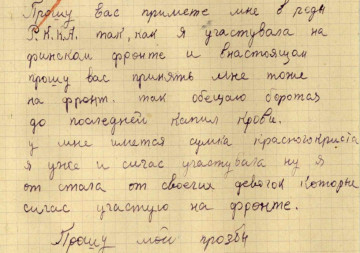 Прошу вас примете мне в ряды
Р.К.К.А. так, как я участувала на
финском фронте и внастоящом
прошу вас принять мне тоже
на фронт. так обещаю боротса
до последней капил крови.
у мне имется сумка красногокриста
я уже и сичас участувала ну я
от стала от своегих девочок которые
сичас участую на фронте.
Прошу мои прозбы